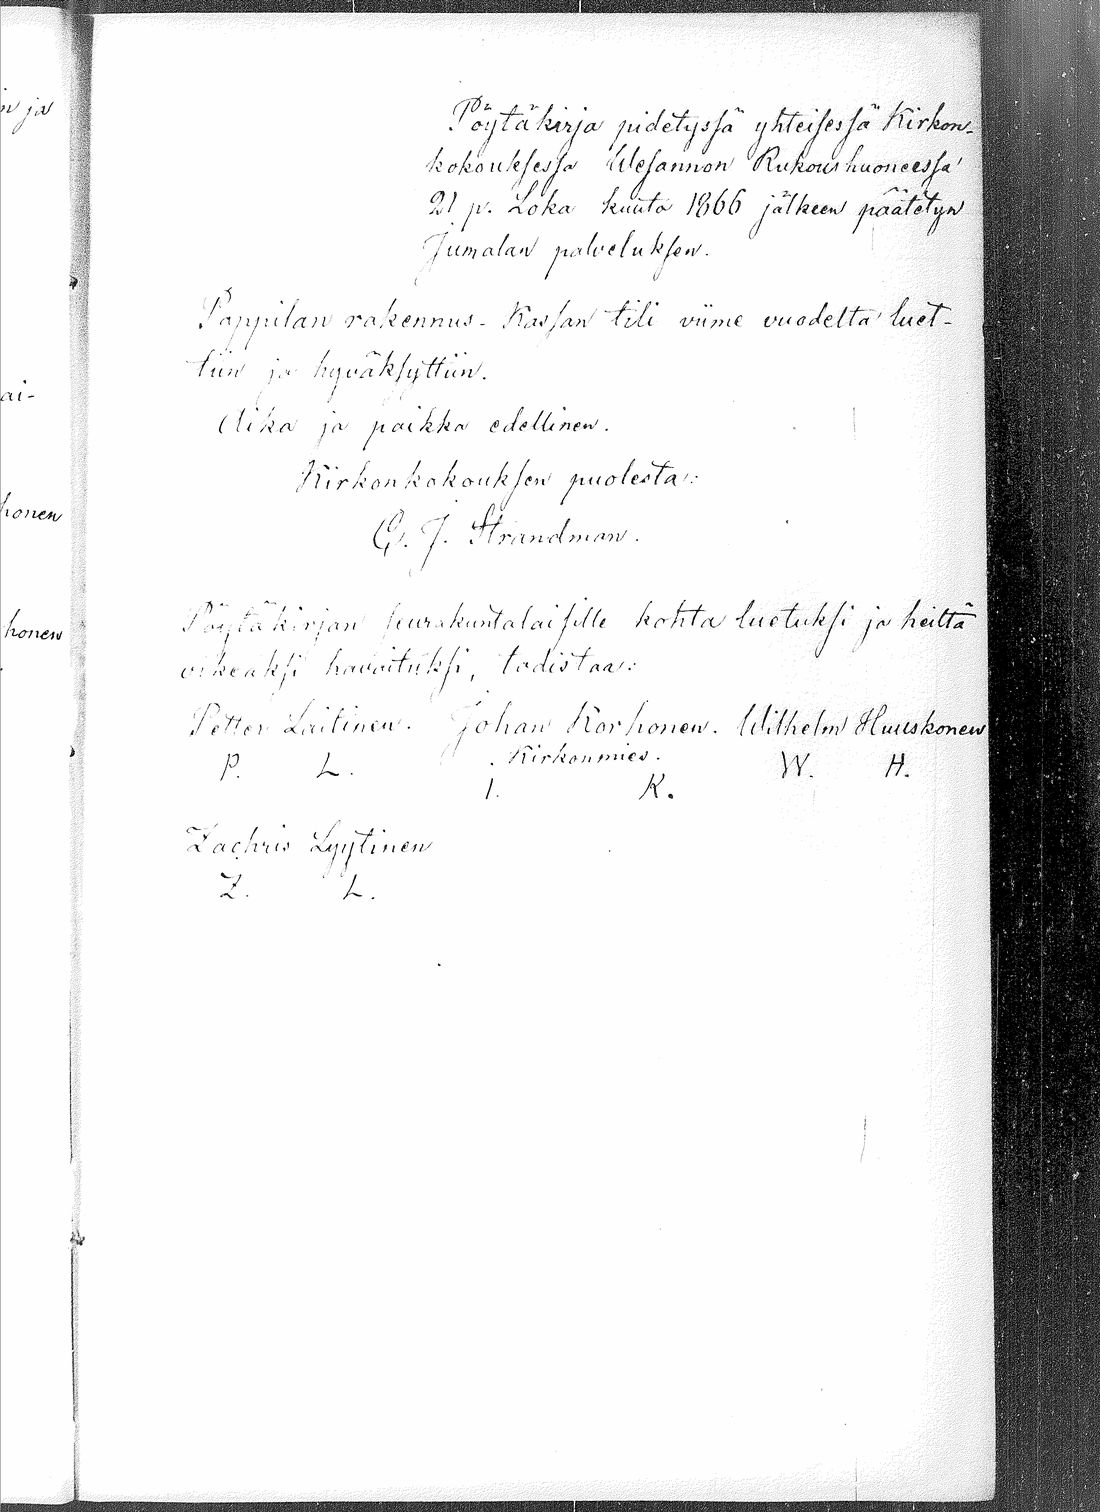 Pöytäkirja pidetyssä yhteisessä Kirkon-
kokouksessa Wesannon Rukoushuoneessa
21 p. Loka kuuta 1866 jälkeen päätetyn
Jumalan palveluksen.
Pappilan rakennus-Kassan tili viime vuodelta luet-
tiin ja hyväksyttiin.
Aika ja paikka edellinen.
Kirkonkokouksen puolesta:
G. J. Strandman.
Pöytäkirjan seurakuntalaisille kohta luetuksi ja heiltä
oikeaksi havaituksi, todistaa:
Petter Laitinen. Johan Korhonen. Wilhelm Huuskonen
Kirkonmies.
P. L. W. H.
I. K.
Zachris Lyytinen
Z. L.
n ja
ai-
honen
honen